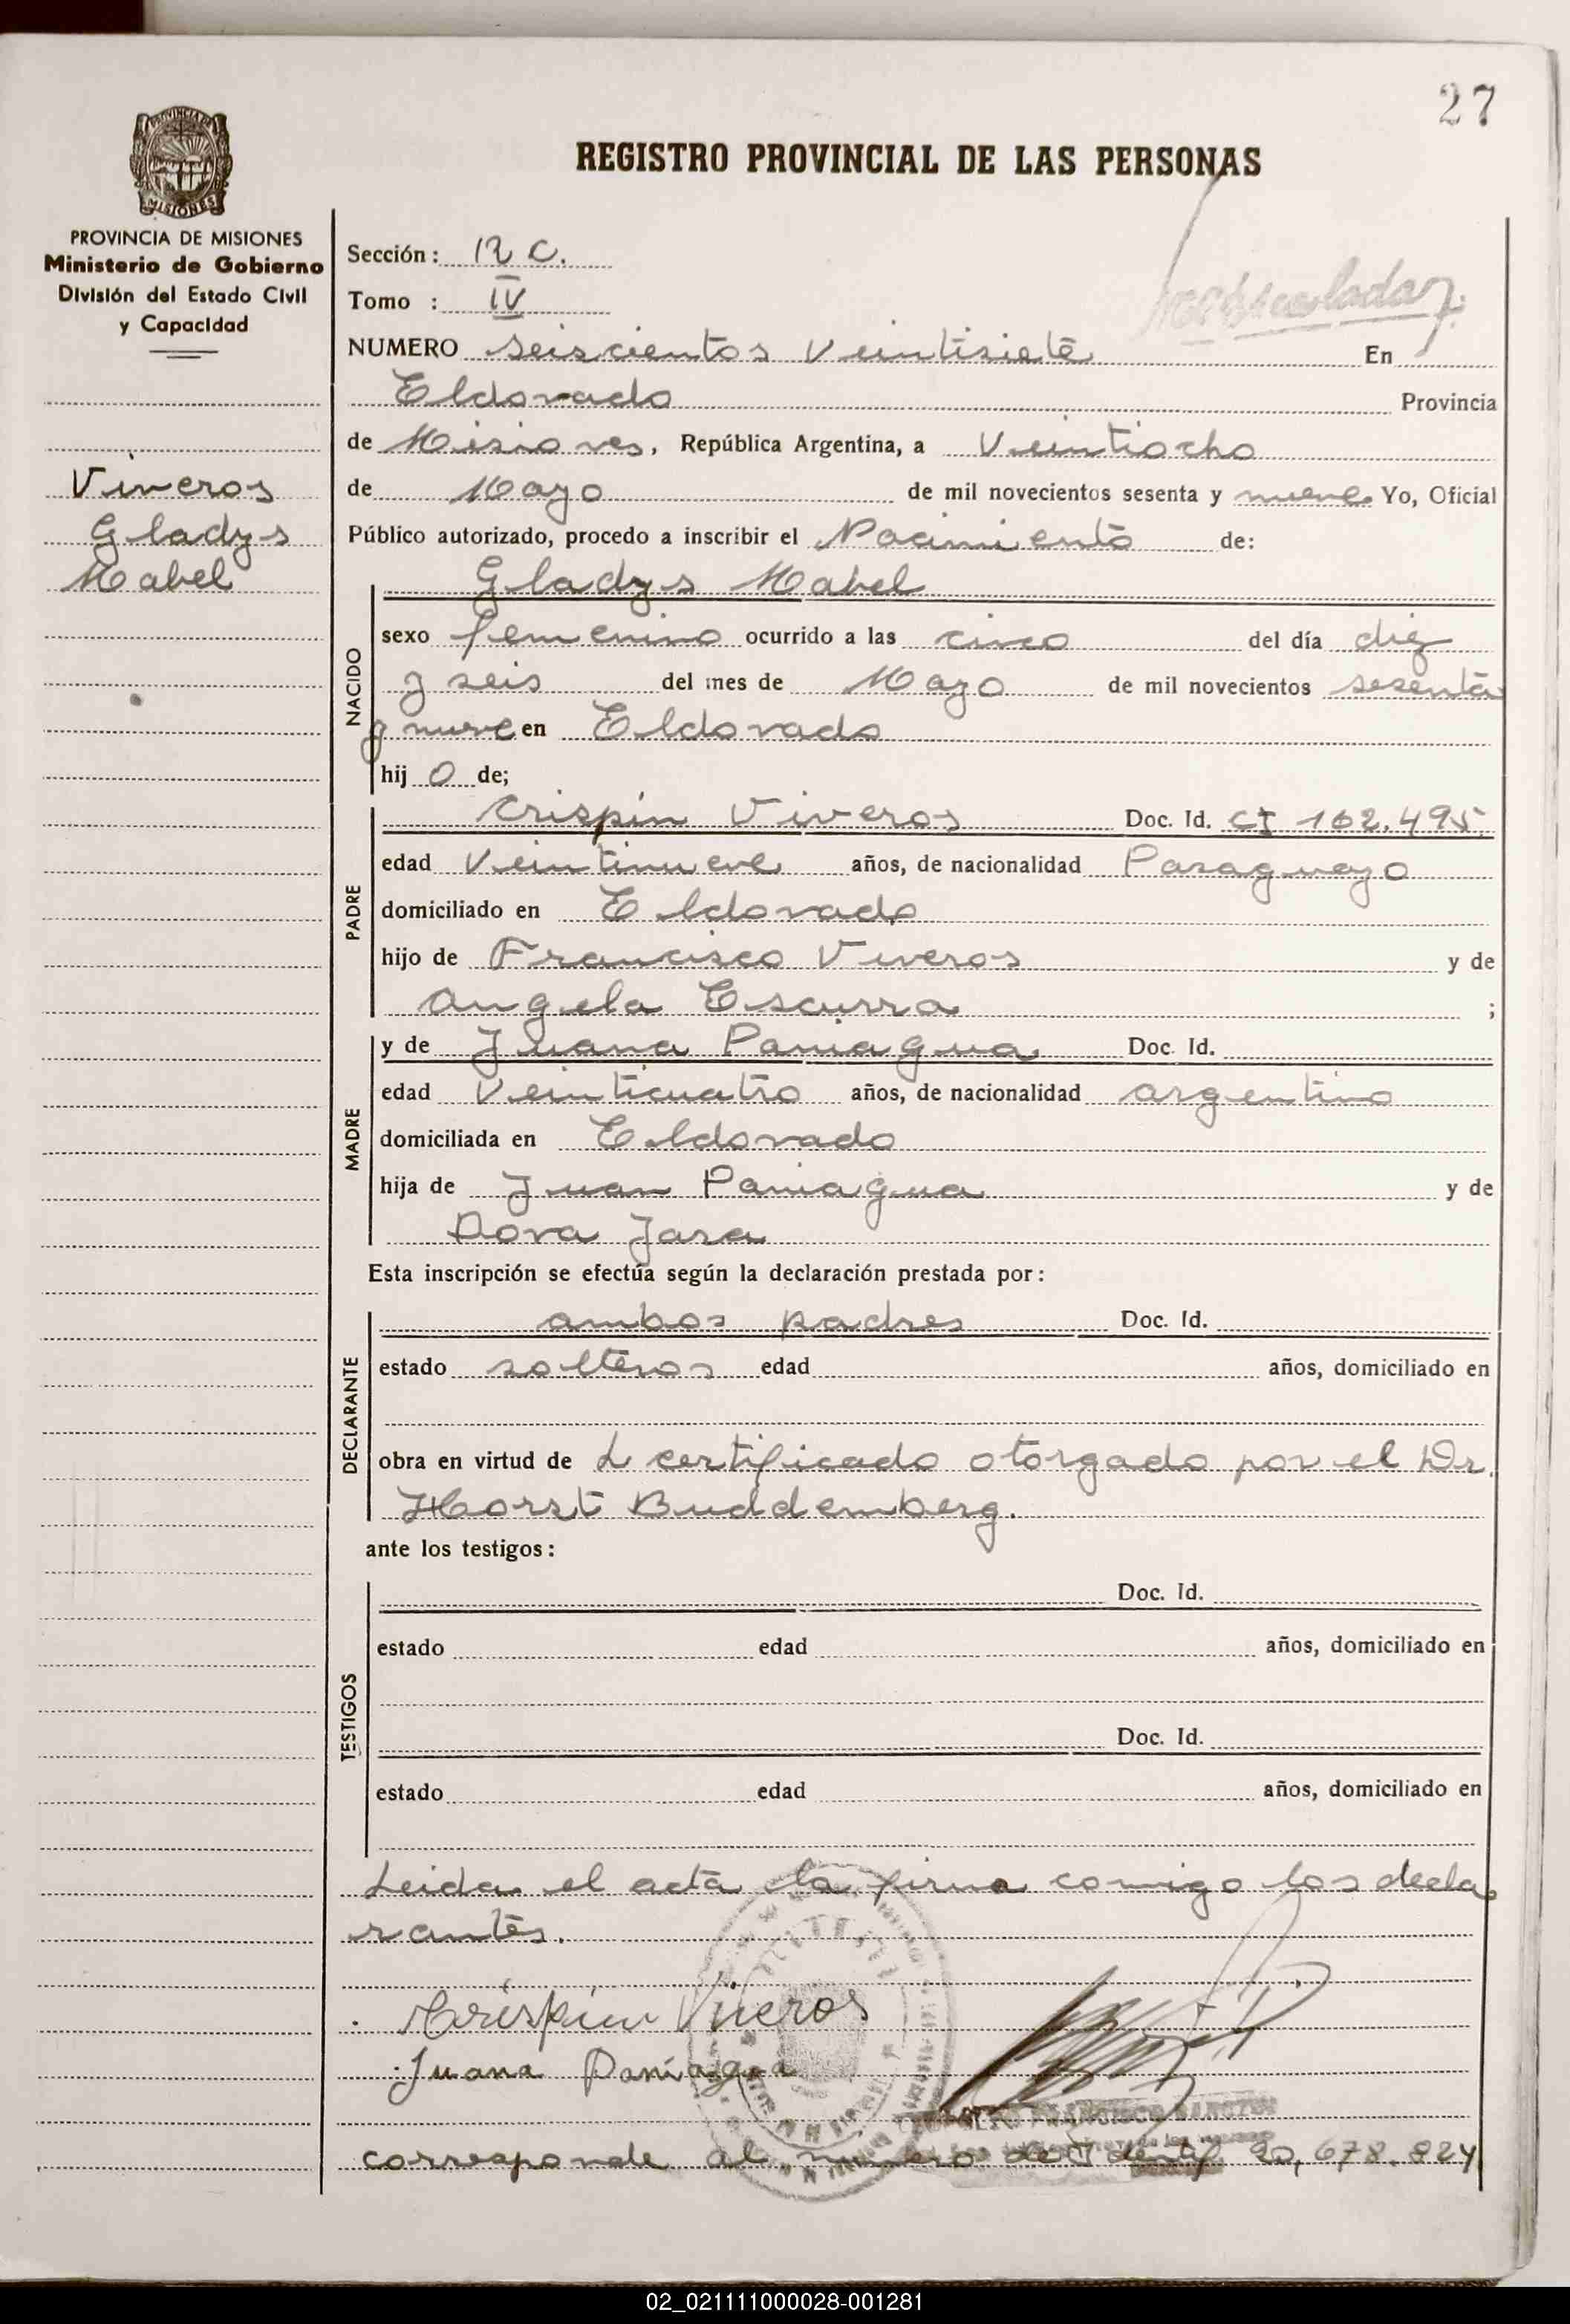 27
PROVINCIA DE
MISIONES
REGISTRO PROVINCIAL DE LAS PERSONAS
PROVINCIA DE MISIONES
Ministerio de Gobierno
División del Estado Civil
y Capacidad
Viveros
Gladys
Mabel
Sección: 12 C.
Tomo : IV
NUMERO Seiscientos Veintisiete En
Eldorado Provincia
de Misiones, República Argentina, a Veintiocho
de Mayo de mil novecientos sesenta y nueve Yo, Oficial
Público autorizado, procedo a inscribir el Nacimiento de:
NACIDO
Gladys Mabel
sexo femenino ocurrido a las cinco del día diez
y seis del mes de Mayo de mil novecientos sesenta
y nueve en Eldorado
hij o de;
PADRE
Crispin Viveros Doc. Id. CI 162.495
edad Veintinueve años, de nacionalidad Paraguayo
domiciliado en Eldorado
hijo de Francisco Viveros y de
Angela Escurra ;
MADRE
y de Juana Paniagua Doc. Id.
edad Veinticuatro años, de nacionalidad argentina
domiciliada en Eldorado
hija de Juan Paniagua y de
Dora Jara
Esta inscripción se efectúa según la declaración prestada por:
DECLARANTE
ambos padres Doc. Id.
estado solteros edad años, domiciliado en
obra en virtud de L certificado otorgado por el Dr.
Horst Buddemberg.
ante los testigos:
TESTIGOS
Doc. Id.
estado edad años, domiciliado en
Doc. Id.
estado edad años, domiciliado en
Leida el acta la firma conmigo los decla
rantes.
Crispin Viveros
Juana Paniagua
FRANCISCO
corresponde al número de Identif 20,678.824
02_021111000028-001281